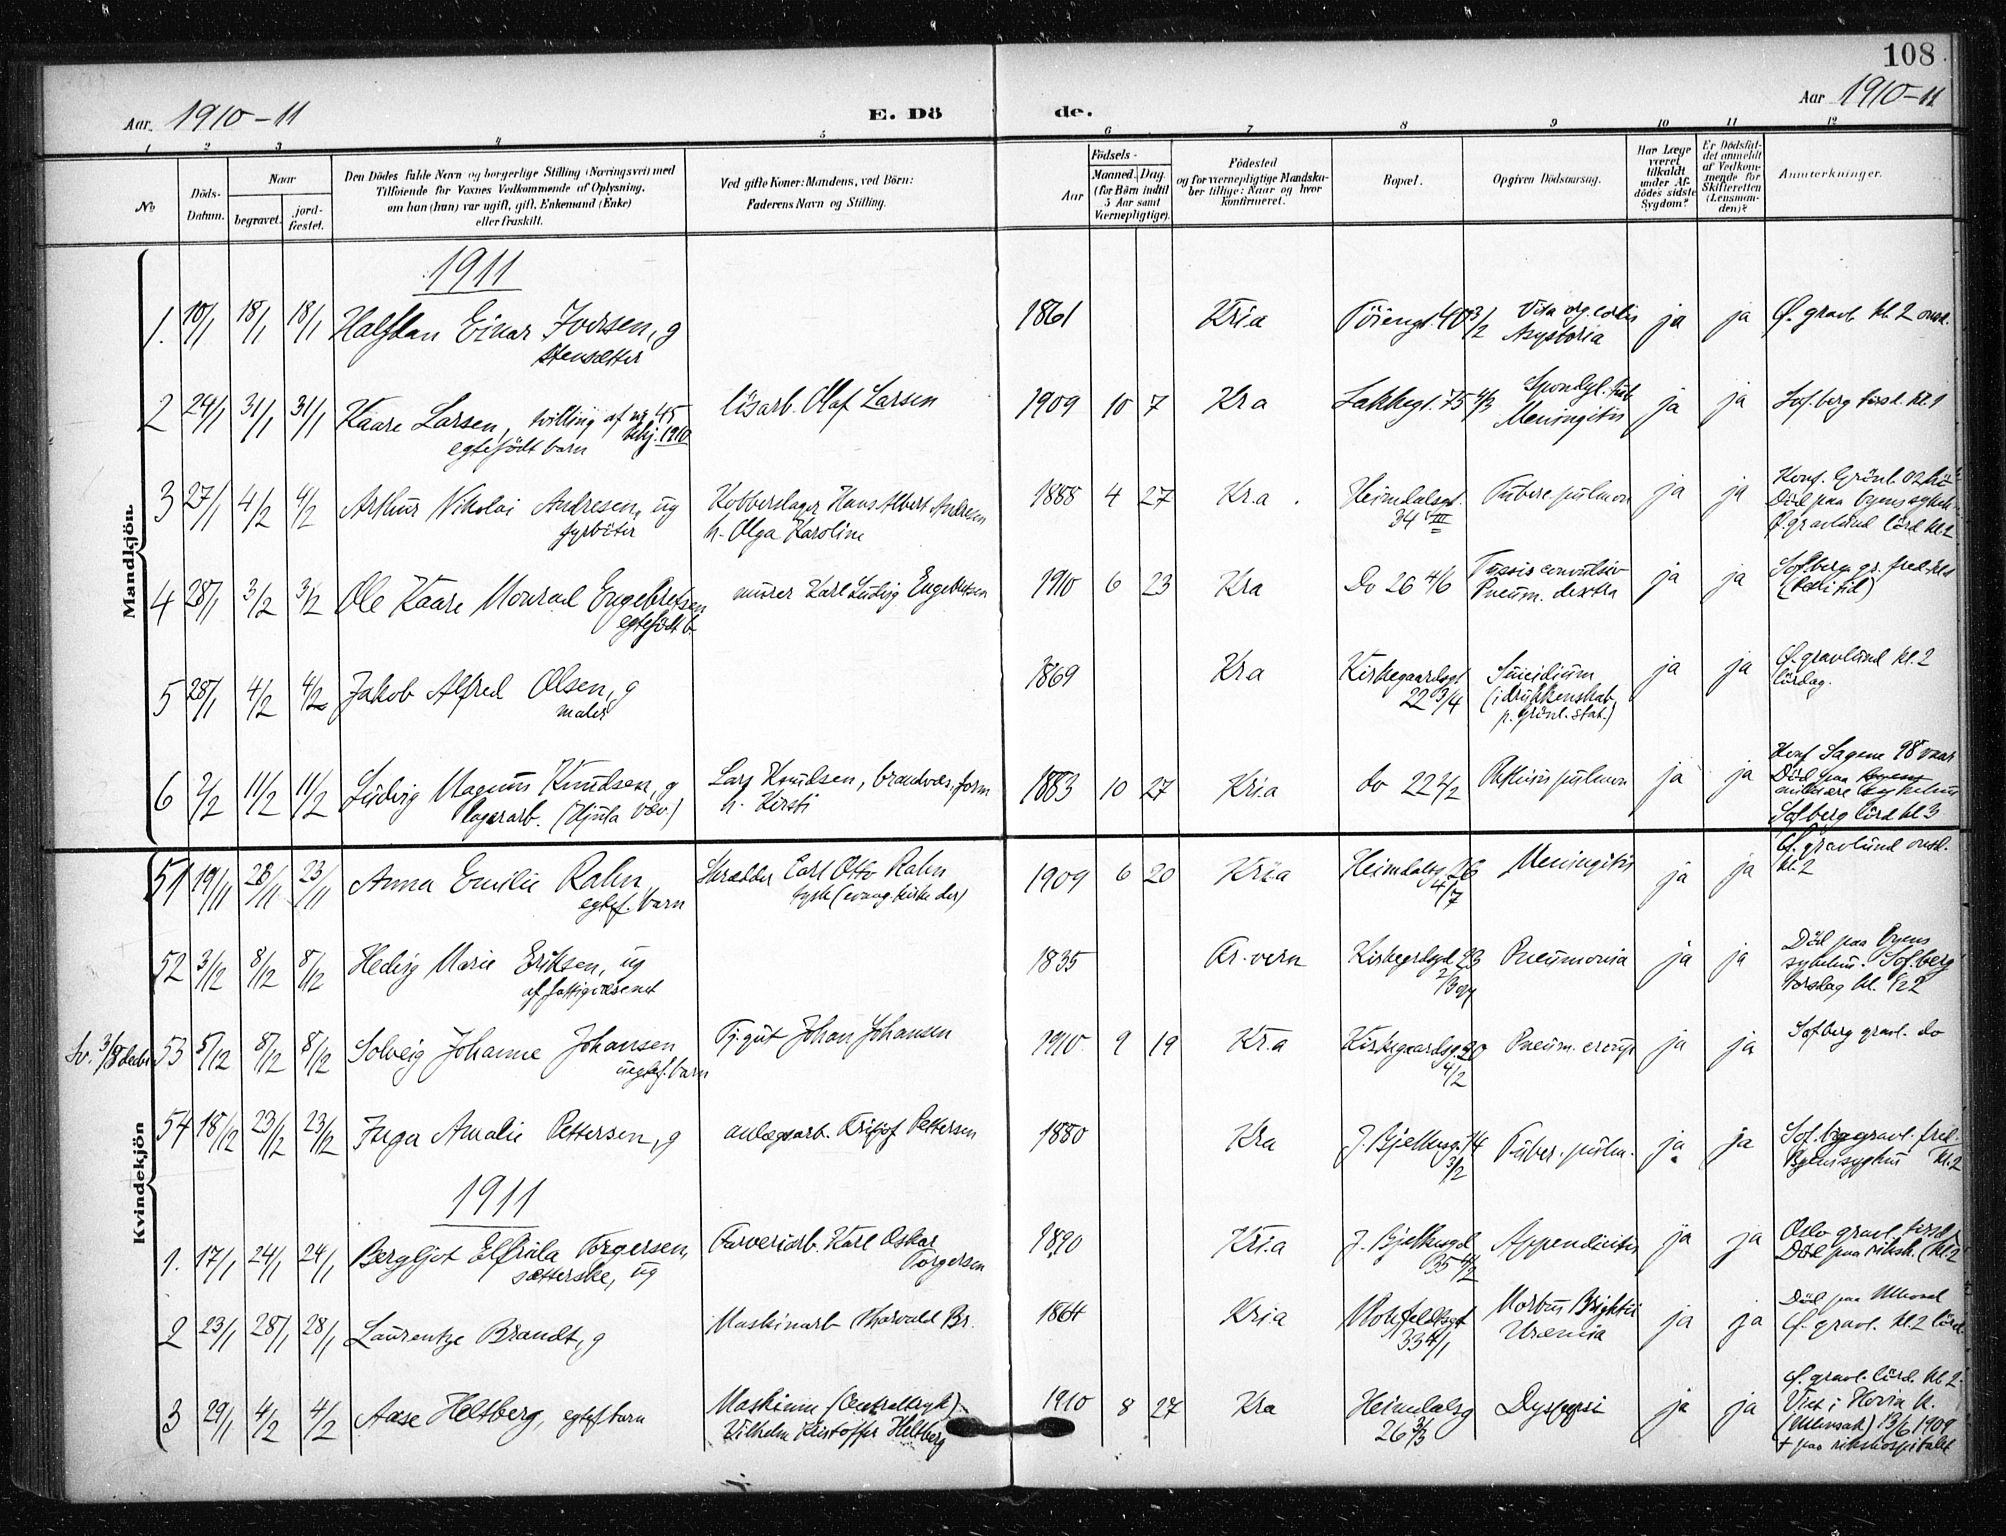 108
Aar 1910-11
E. Döde.
Aar 1910-11
1 2 3 4 5 6 7 8 9 10 11 12
No
Döds-Datum.
Naar
begravet.
jord-fæstet.
Den Dödes fulde Navn og borgerlige Stilling (Næringsvei) med
Tilföiende for Voxnes Vedkommende af Oplysning,
om han (hun) var ugift, gift, Enkemand (Enke)
eller fraskilt.
Ved gifte Koner: Mandens, ved Börn:
Faderens Navn og Stilling.
Födsels-
Aar
Maaned. Dag.
(for Börn indtil
5 Aar samt
Værnepligtige).
Födested
og for værnepligtige Mandskaber tillige: Naar og hvor
konfirmeret.
Bopæl.
Opgiven Dödsaarsag.
Har Læge
været
tilkaldt
under Afdödes sidste
Sygdom?
Er Dödsfaldet anmeldt
af Vedkommende for
Skifteretten
(Lensmanden)?
Anmerkninger.
Mandkjön.
1911
1. 10/1 18/1 18/1 Halfdan Einar Iversen, g 1861 Kria Töiengt. 40 3/2 Vita org. cordis ja ja Ø. gravl. kl. 2 onsd.
stensætter Asystoria
2 24/1 31/1 31/1 Kaare Larsen, tvilling af nr 45 lösarb. Olaf Larsen 1909 10 7 Kra Lakkegt. 75 4/3 Spondyl. tub. ja ja Sofberg tirsd. kl. 1
egtefödt barn 1910 Meningitis
3 27/1 4/2 4/2 Arthur Nikolai Andresen, ug Kobberslager Hans Albert Andresen 1888 4 27 Kr.a. Heimdalsgt. Tuberc. pulmon ja ja Konf. Grönl. 02
fyrböter h. Olga Karoline 34 III Död paa byens sykeh.
Ø. gravlund lörd kl 2
4 28/1 3/2 3/2 Ole Kaare Monrad Engebretsen murer Karl Ludvig Engebretsen 1910 6 23 Kra Do 26 4/6 Tussis convulsiv ja ja Sofberg gr. fred. kl 1
egtefödt b. Pneum. dextra
5 28/1 4/2 4/2 Jakob Alfred Olsen, g 1869 Kra Kirkegaardsgt Suicidium ja ja Ø. gravlund kl. 2
maler 22 3/4 (i drukkenskab lördag.
p. Grönl. stat.)
6 2/2 11/2 11/2 Ludvig Magnus Knudsen, g Lars Knudsen, brandvæs. form 1883 10 27 Kria do 22 2/2 Phtisis pulmon ja ja Konf Sagene 98 vaar
lagerarb. (Hjula Væv.) h. Kirsti Död paa byens
militære sykehus
Sofberg lörd kl 3
Kvindekjön
51 19/11 23/11 23/11 Anna Emilie Rahn Skrædder Carl Otto Rahn 1909 6 20 Kria Heimdalsg 26 Meningitis ja ja Ø. gravlund onsd.
egtef. barn tysk (evang. kirke der) 4/7 kl. 2
52 3/12 8/12 8/12 Hedvig Marie Eriksen, ug 1835 Kirkegrdsgd 23 Pneumonia ja ja Död paa Byens
af fattigvæsenet sykehus. Sofberg
torsdag kl. 1/2 2
53 5/12 8/12 8/12 Solveig Johanne Johansen Tj. gut Johan Johansen 1910 9 19 Kr.a Kirkegaardsg. 20 Pneum. croup ja ja Sofberg gravl. do
uegtef. barn 4/2
54 18/12 23/12 23/12 Inga Amalie Pettersen, g anlægsarb. Fritjof Pettersen 1880 Kra J. Bjelkesg. 14 Tuber. pulm. ja ja Sof. berg gravl. fred.
3/2 Byens syghus kl. 2
1911
1. 17/1 24/1 24/1 Bergljot Elfrida Torgersen, Farveriarb. Karl Oskar 1890 Kr.a J. Bjelkesgd Appendicitis ja ja Oslo gravl. tirsd
sætterske, ug Torgersen 35 4/2 Död paa riksh. (kl. 2
2 23/1 28/1 28/1 Laurentze Brandt, g Maskinarb Thorvald Br. 1864 Kria Motzfeldtsgt Morbus Brightii ja ja Död paa Ullevaal
33 4/1 Uræmia Ø. gravl. kl. 2 lörd.
3 29/1 4/2 4/2 Aase Heltberg, egtef barn Maskinm (Centraltryk) 1910 8 27 Kra Heimdalsg Dyspepsi ja ja Ø. gravl. lörd. kl 2.
Vilhelm Kristoffer Heltberg 26 3/3 Viet i Hovin k.
(Ullensak) 13/6 1909
+ paa rikshospitalet